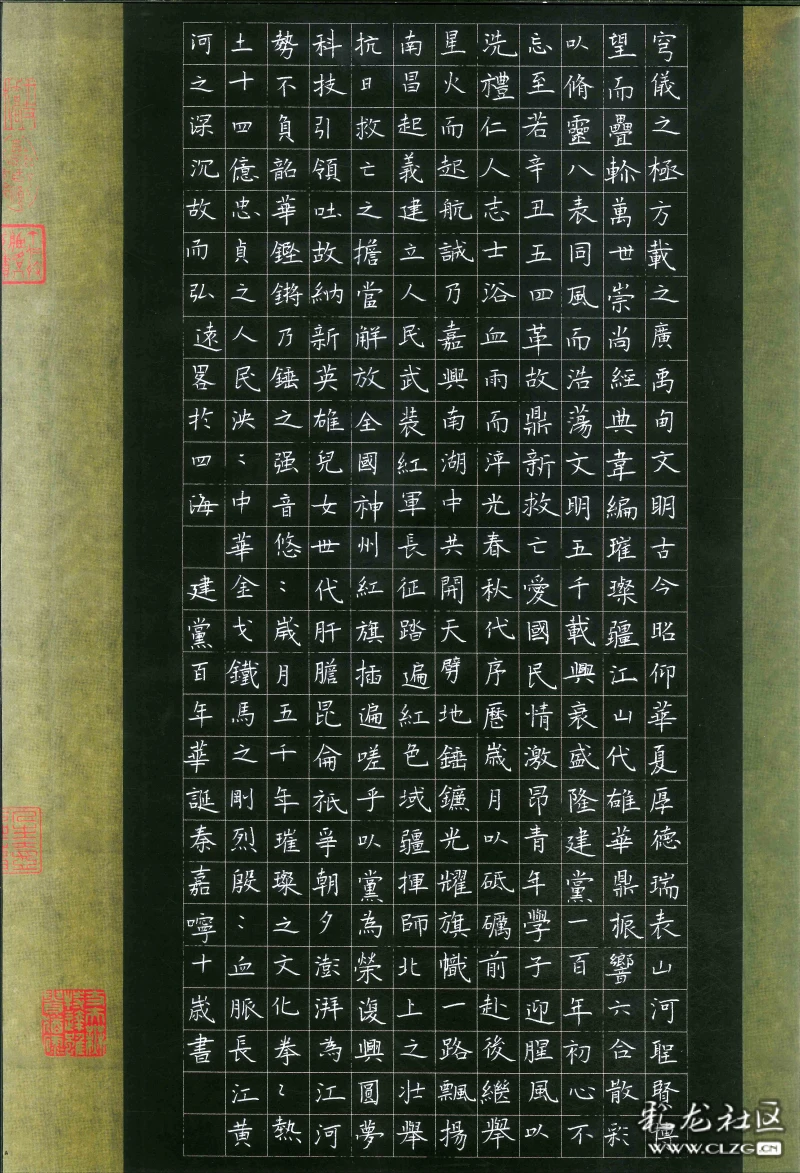 穹儀之極方載之廣禹甸文明古今昭仰華夏厚德瑞表山河聖賢
望而疊軫萬世崇尚經典韋編璀璨疆江山代雄華鼎振響六合散彩
以脩靈八表同風而浩蕩文明五千載興衰盛隆建黨一百年初心不
忘至若辛丑五四革故鼎新救亡愛國民情激昂青年學子迎腥風以
洗禮仁人志士浴血雨而淬光春秋代序歷歲月以砥礪前赴後繼舉
星火而起航誠乃嘉興南湖中共開天劈地錘鐮光耀旗幟一路飄揚
南昌起義建立人民武裝紅軍長征踏遍紅色域疆揮師北上之壯舉
抗日救亡之擔當解放全國神州紅旗插遍嗟乎以黨為榮復興圓夢
科技引領吐故納新英雄兒女世代肝膽昆侖祇爭朝夕澎湃為江河
勢不負韶華鏗鏘乃錘之强音悠〻歲月五千年璀璨之文化拳〻熱
土十四億忠貞之人民泱〻中華金戈鐵馬之剛烈殷〻血脈長江黃
河之深沉故而弘遠畧於四海 建黨百年華誕秦嘉嚀十歲書
彩龙社区
WWW.CLZG.CN